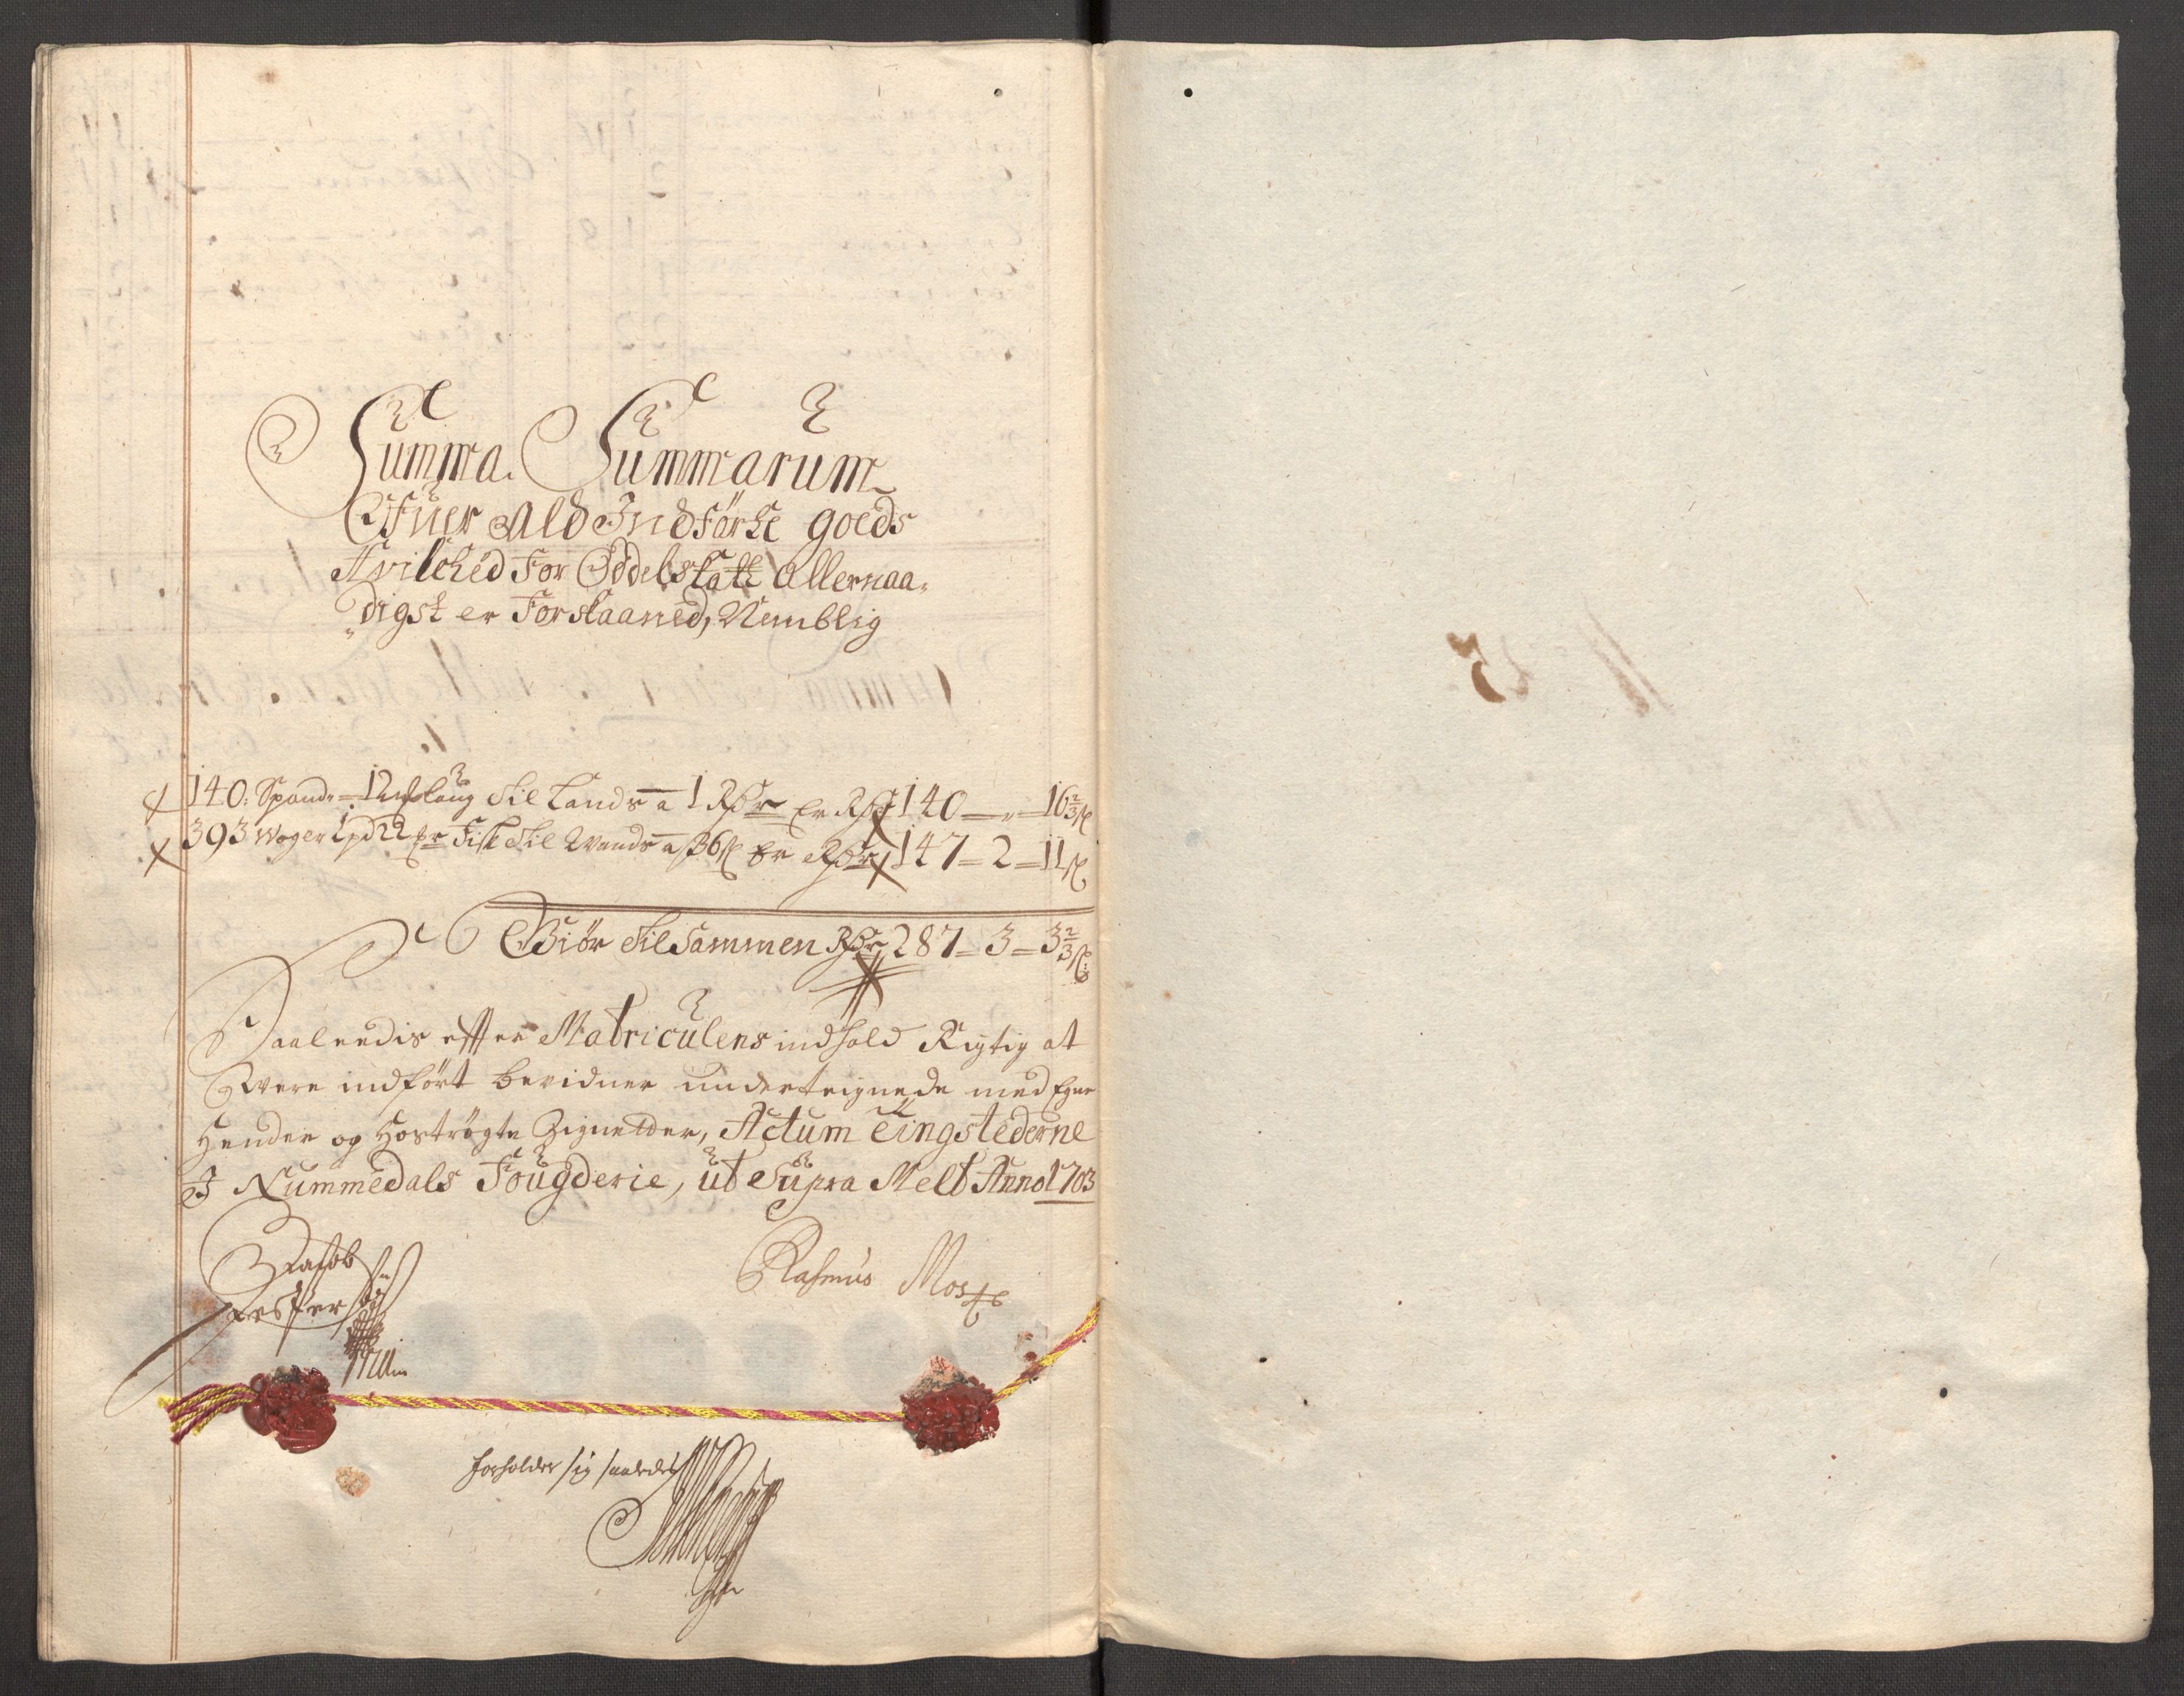 Summa. Summarum
Ofuer Ald Indførte goeds
Hvilched For Oddelskatt Allernaa,
„digst er Forskaaned, Nemblig
140: Spand = 12 Mklaug Til Lands a 1 Rdr Er Rdr 140 — „ — 16 2/3 ß
393 Woger 1 pd 22 Fisk Til Wands a 36 ß Er Rdr 147 = 2 = 11 ß
Giör Tilsammen Rdr 287 = 3 = 3 2/3 ß:
Saaleedis efter Matriculens indhold Rigtig at
Were indført bevidner underteignede med Egne
Hender og hoströgte Zignetter, Actum Tingstederne
I Nummedals Fougderie, ut Supra Melt Anno 1703
Rasmus Mos
forholder sig saaledes